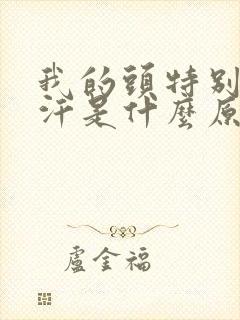 我的頭特別
汗是什麼原
盧金福